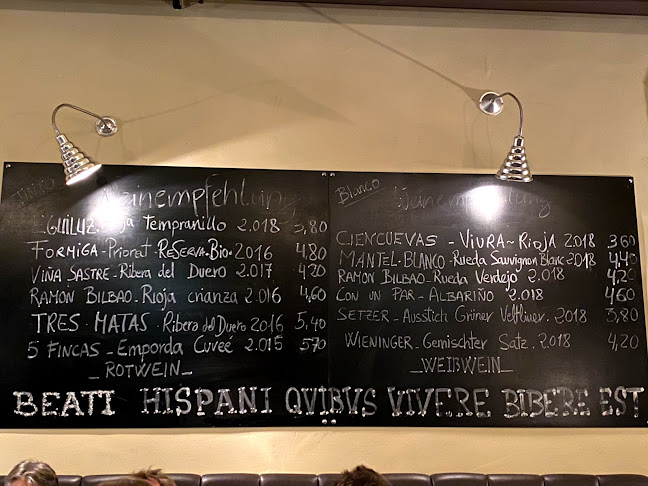 Tinto
Weinempfehlung
EGUILUZ Rioja Tempranillo 2.018 3,80
FORMIGA - Priorat - RESERVA - Bio - 2016 4,80
VIÑA SASTRE - Ribera del Duero 2.017 4,20
RAMÓN BILBAO - Rioja crianza 2.016 4,60
TRES MATAS - Ribera del Duero 2016 5,40
5 FINCAS - Emporda Cuveé 2.015 570
_ROTWEIN_
Blanco
Weinempfehlung
CIENCUEVAS - VIURA ~ RIOJA 2.018 3,60
MANTEL BLANCO - Rueda Sauvignon Blanc 2018 4,40
RAMON BILBAO - Rueda Verdejo 2.018 4,20
CON UN PAR - ALBARIÑO 2.018 4,60
SETZER - Ausstich Grüner Veltliner. 2.018 3,80
WIENINGER - Gemischter Satz. 2.018 4,20
_WEIßWEIN_
BEATI HISPANI QVIBVS VIVERE BIBERE EST